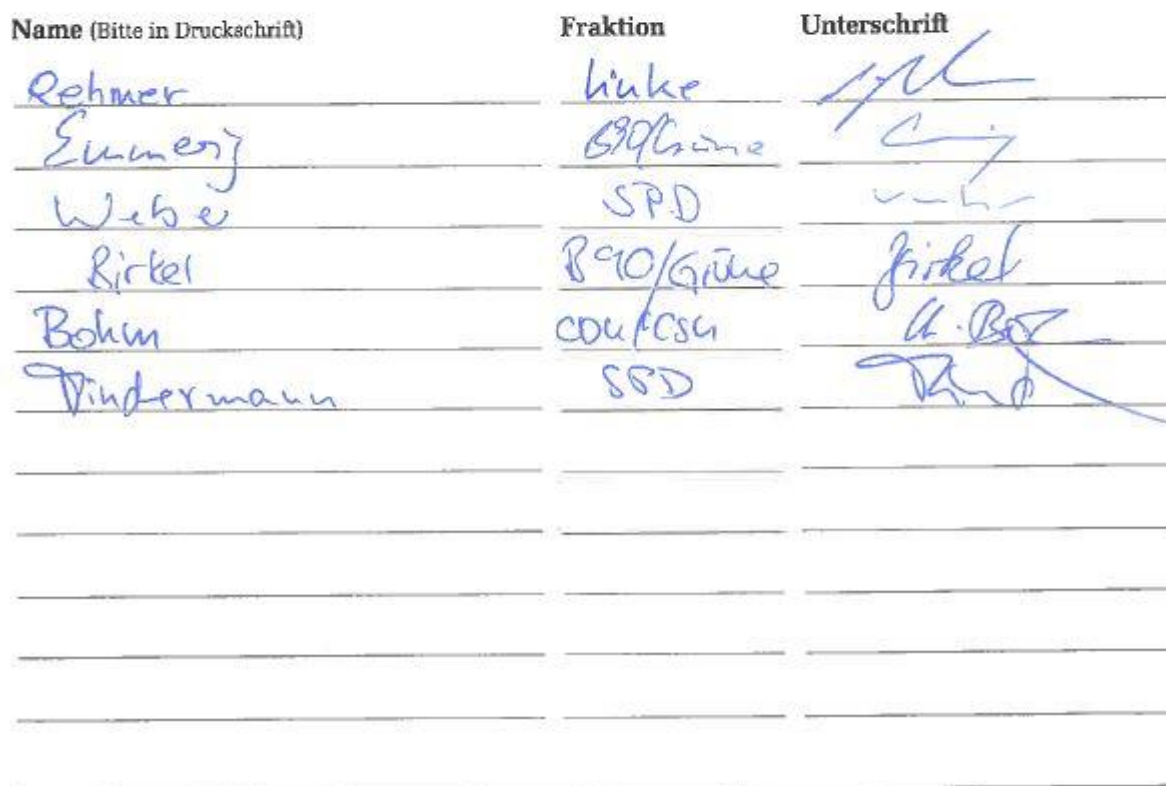 Name (Bitte in Druckschrift) Fraktion Unterschrift
Rehmer Linke
Emmerij B90/Grüne
Weber SPD
Birkel B90/Grüne Birkel
Bohm CDU/CSU
Tindermann SPD